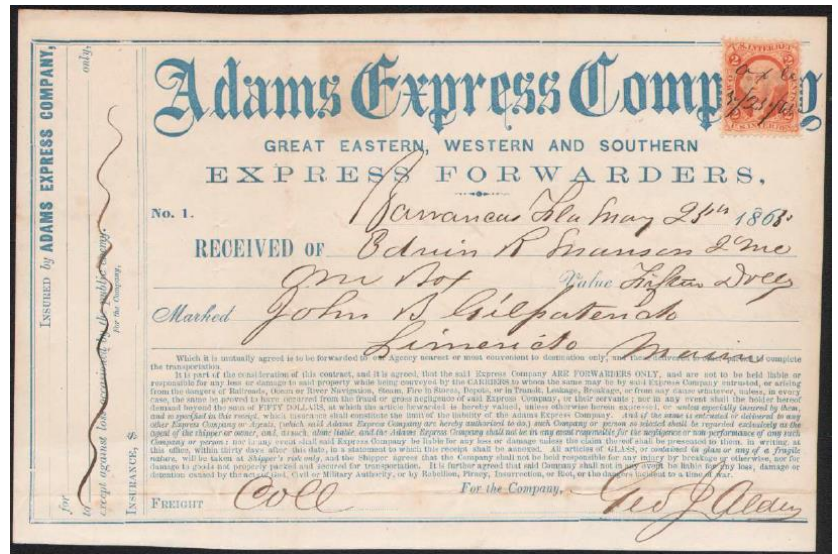 Adams Express Company
GREAT EASTERN, WESTERN AND SOUTHERN
EXPRESS FORWARDERS,
No. 1. Barrancas Fla May 25th 1865
RECEIVED OF Edwin R Manson 2d Me
One Box Value Fifteen Dolls
Marked John B Gilpatrick
Limerick Maine
Which it is mutually agreed is to be forwarded to our Agency nearest or most convenient to destination only, and there delivered to other parties to complete
the transportation.
It is part of the consideration of this contract, and it is agreed, that the said Express Company ARE FORWARDERS ONLY, and are not to be held liable or
responsible for any loss or damage to said property while being conveyed by the CARRIERS to whom the same may be by said Express Company entrusted, or arising
from the dangers of Railroads, Ocean or River Navigation, Steam, Fire in Stores, Depots, or in Transit, Leakage, Breakage, or from any cause whatever, unless, in every
case, the same be proved to have occurred from the fraud or gross negligence of said Express Company, or their servants; nor in any event shall the holder hereof
demand beyond the sum of FIFTY DOLLARS, at which the article forwarded is hereby valued, unless otherwise herein expressed, or unless specially insured by them,
and so specified in this receipt, which insurance shall constitute the limit of the liability of the Adams Express Company. And if the same is entrusted or delivered to any
other Express Company or Agents, (which said Adams Express Company are hereby authorized to do,) such Company or person so selected shall be regarded exclusively as the
agent of the shipper or owner, and, as such, alone liable, and the Adams Express Company shall not be in any event responsible for the negligence or non-performance of any such
Company or person; nor in any event shall said Express Company be liable for any loss or damage unless the claim therefor shall be presented to them, in writing, at
this office, within thirty days after this date, in a statement to which this receipt shall be annexed. All articles of GLASS, or contained in glass or any of a fragile
nature, will be taken at Shipper's risk only, and the Shipper agrees that the Company shall not be held responsible for any injury by breakage or otherwise, nor for
damage to goods not properly packed and secured for transportation. It is further agreed that said Company shall not in any event be liable for any loss, damage or
detention caused by the acts of God, Civil or Military Authority, or by Rebellion, Piracy, Insurrection, or Riot, or the dangers incident to a time of war.
For the Company,
FREIGHT Coll Geo J Alden
INSURED by ADAMS EXPRESS COMPANY,
for only,
to
except against loss occasioned by the public enemy.
For the Company,
INSURANCE, $
U.S. INTER. REV.
2 2